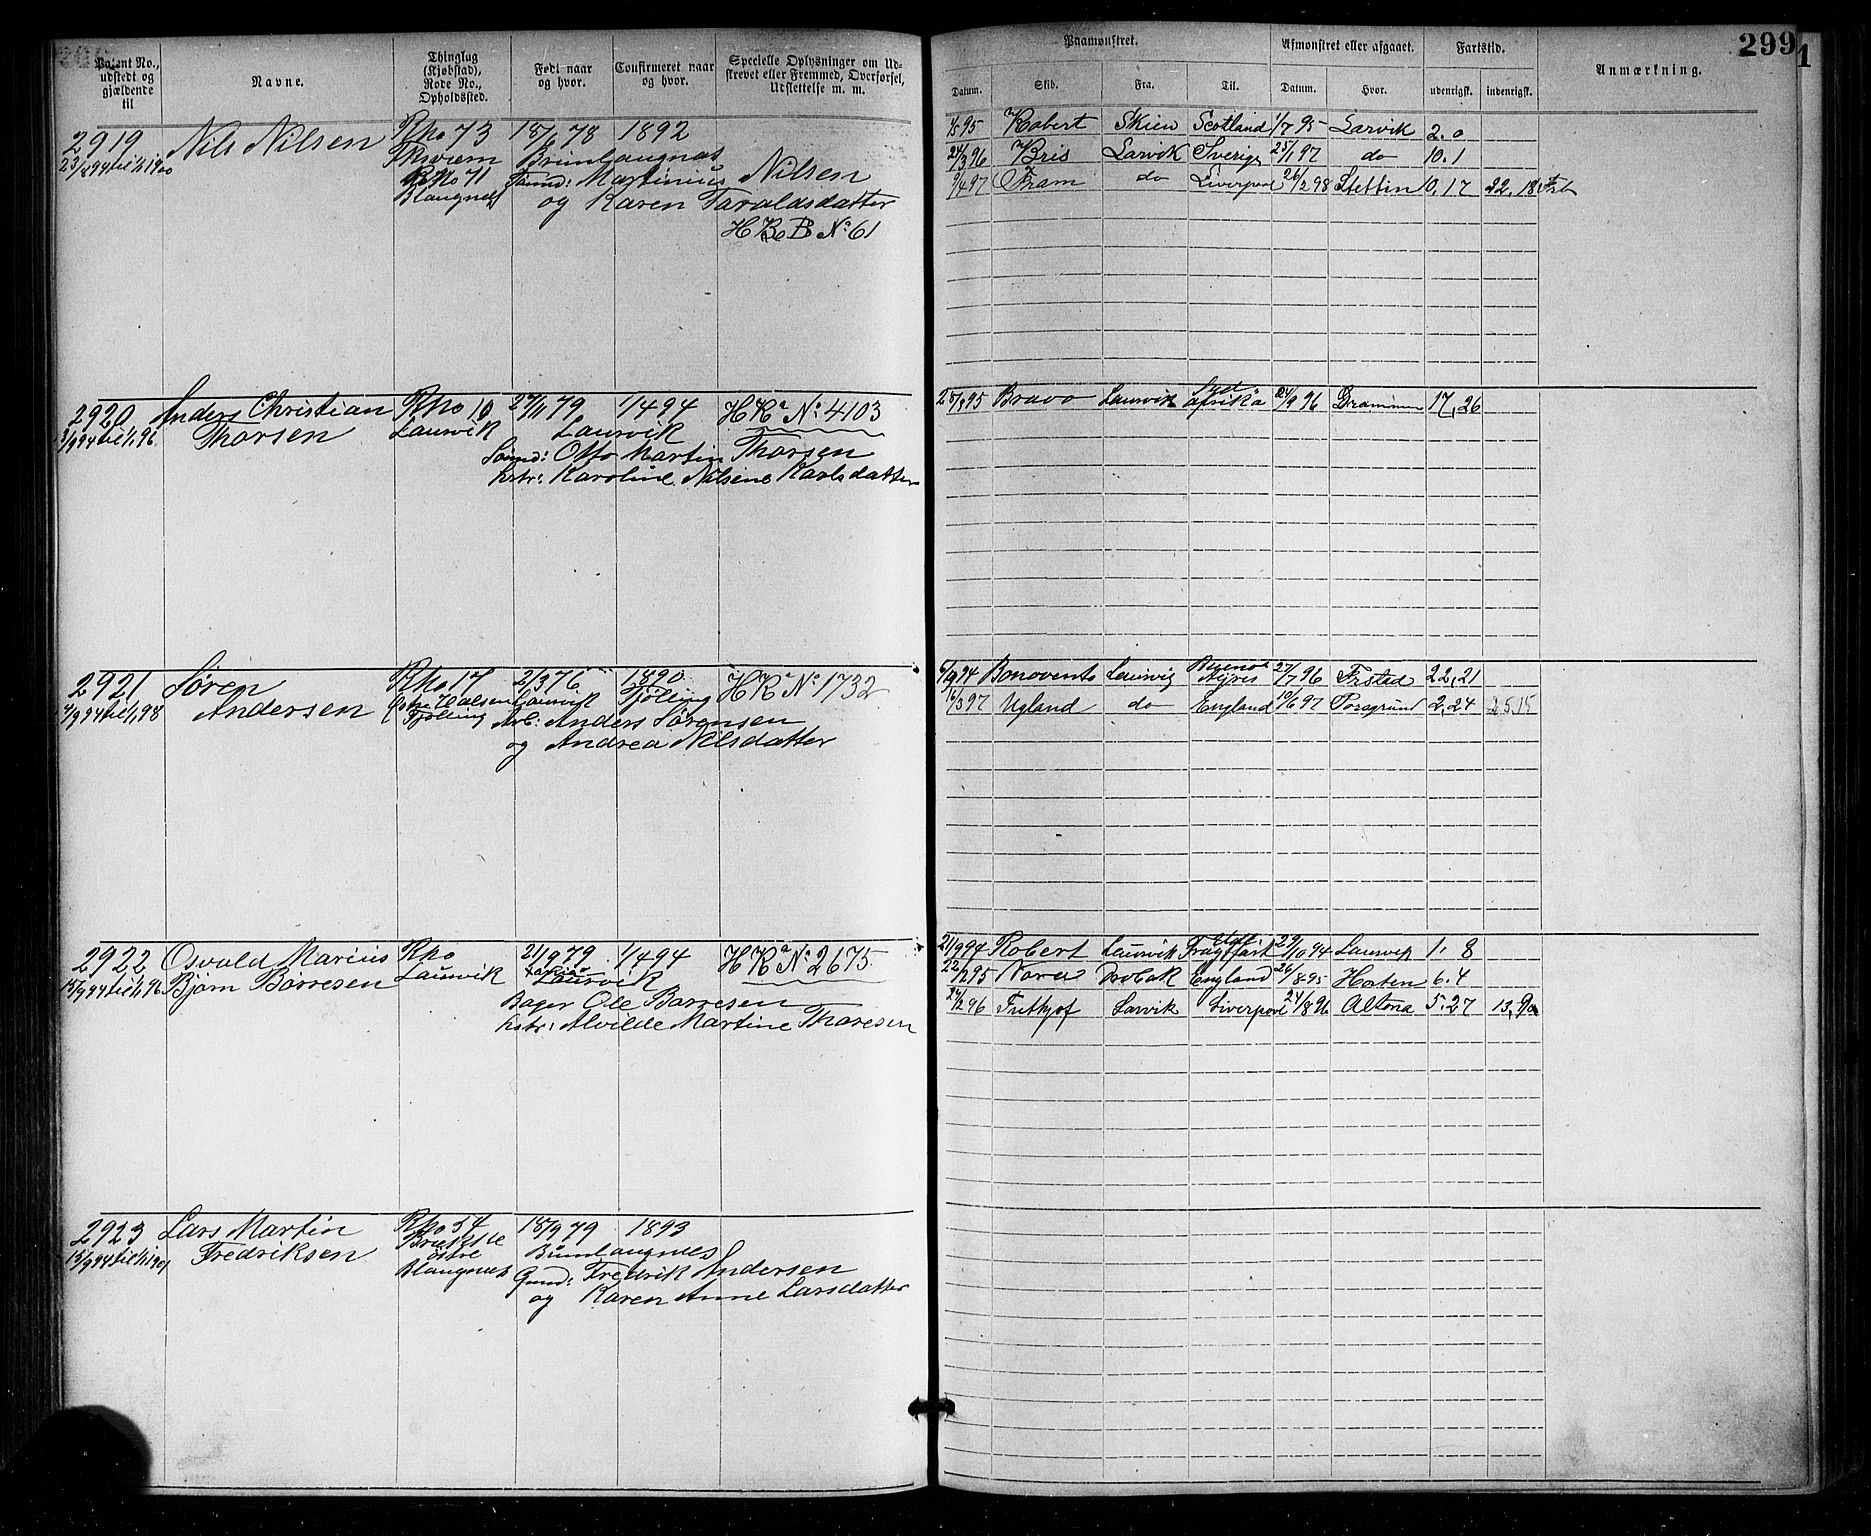 Patent No., udstedt og gjældende til
Navne.
Thinglag (Kjøbstad), Rode No., Opholdssted.
Født naar og hvor.
Confirmeret naar og hvor.
Specielle Oplysninger om Udskrevet eller Fremmed, Overførsel, Udslettelse m. m.
Paamønstret.
Afmønstret eller afgaaet.
Fartstid.
Anmærkning.
299
1
Datum.
Skib.
Fra.
Til.
Datum.
Hvor.
udenrigsk.
indenrigsk.
2919 Nils Nilsen Rno 73 18/1 78 1892
23/8 94 til 1/1 1900 Brunlaugnæs
Rno 71 Martinius Nilsen
Blaugnes og Karen Taraldsdatter
H B No 61
1/5 95 Robert Skien Scotland 1/7 95 Larvik 2.0
24/3 96 Bris Larvik Sverige 25/1 97 do 10.1
9/4 97 Fram do Liverpool 26/2 98 Stettin 10.17 22.18
2920 Anders Christian Rno 10 27/11 79 1/4 94 H Ka No 4103
3/9 94 til 1/1 96 Thorsen Laurvik Laurvik
Sømd: Otto Martin Thorsen
hstr: Karoline Nilsine Karlsdatter
25/3 95 Bravo Laurvik Syd afrika 21/9 96 Drammen 17,26
2921 Søren Rno 17 2/3 76 1890 H Ka No 1732
4/9 94 til 1/1 98 Andersen Østre Halsen Laurvik Tjølling
Tjølling Arb: Anders Sørensen
og Andrea Nilsdatter
6/9 94 Bonovento Laurvig Buenos Ayris 27/7 96 Frstad 22,21
16/3 97 Ugland do England 19/6 97 Porsgrund 2,24 25.15
2922 Osvald Marius Rno 21/9 79 1/4 94 H Ka No 2675
15/9 94 til 1/1 96 Bjørn Børresen Laurvik Laurvik
Bager Ole Børresen
hstr: Alvilde Martine Thoresen
21/9 94 Robert Laurvik Fragtfart 29/10 94 Laurvik 1. 8
22/2 95 Nora Drøbak England 26/8 95 Horten 6.4
24/2 96 Frithjof Larvik Liverpool 24/8 96 Altona 5.27 13,9
2923 Lars Martin Rno 54 18/9 79 1893
15/9 94 til 1/1 1901 Fredriksen østre Brunlaugnes
Blaugnes Gmd: Fredrik Andersen
og Karen Anne Larsdatter